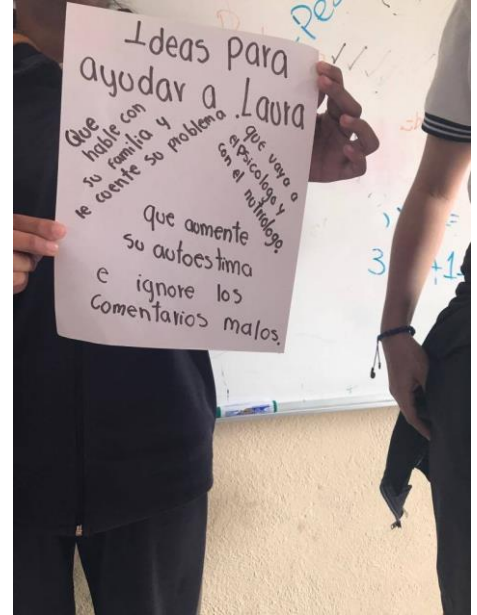 Ideas para
ayudar a Laura
Que
hable con
su familia y
le cuente su problema
que vaya a
el Psicologo y
con el nutriologo.
que aumente
su autoestima
e ignore los
Comentarios malos.
3 +1